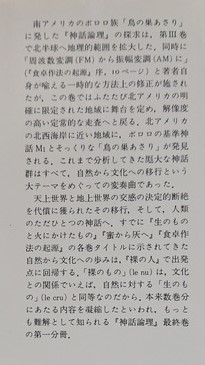 南アメリカのボロロ族「鳥の巣あさり」
に発した『神話論理』の探求は，第Ⅲ巻
で北半球へ地理的範囲を拡大した。同時に
「周波数変調（FM）から振幅変調（AM）に」
（『食卓作法の起源』序，10ページ）と著者自
身が喩える一時的な方法上の修正が施され
たが，この巻ではふたたび北アメリカの明
確に限定された地域に舞台を定め，解像度
の高い定常的な走査へと戻る。北アメリカ
の北西海岸に近い地域に，ボロロの基準神
話M1とそっくりな「鳥の巣あさり」が発見
される。これまで分析してきた厖大な神話
群はすべて，自然から文化への移行という
大テーマをめぐっての変奏曲であった。
天上世界と地上世界の交感の決定的断絶
を代償に獲られたその移行，そして，人類
のただひとつの神話へ。すでに『生のもの
と火にかけたもの』『蜜から灰へ』『食卓作
法の起源』の各巻タイトルに示されてきた
自然から文化への歩みは，『裸の人』で出発
点に回帰する。「裸のもの」（le nu）は，文化
との関係でいえば，自然に対する「生のも
の」（le cru）と同等なのだから。本来数巻分
にあたる内容を凝縮したといわれ，もっと
も難解として知られる『神話論理』最終巻
の第一分冊。